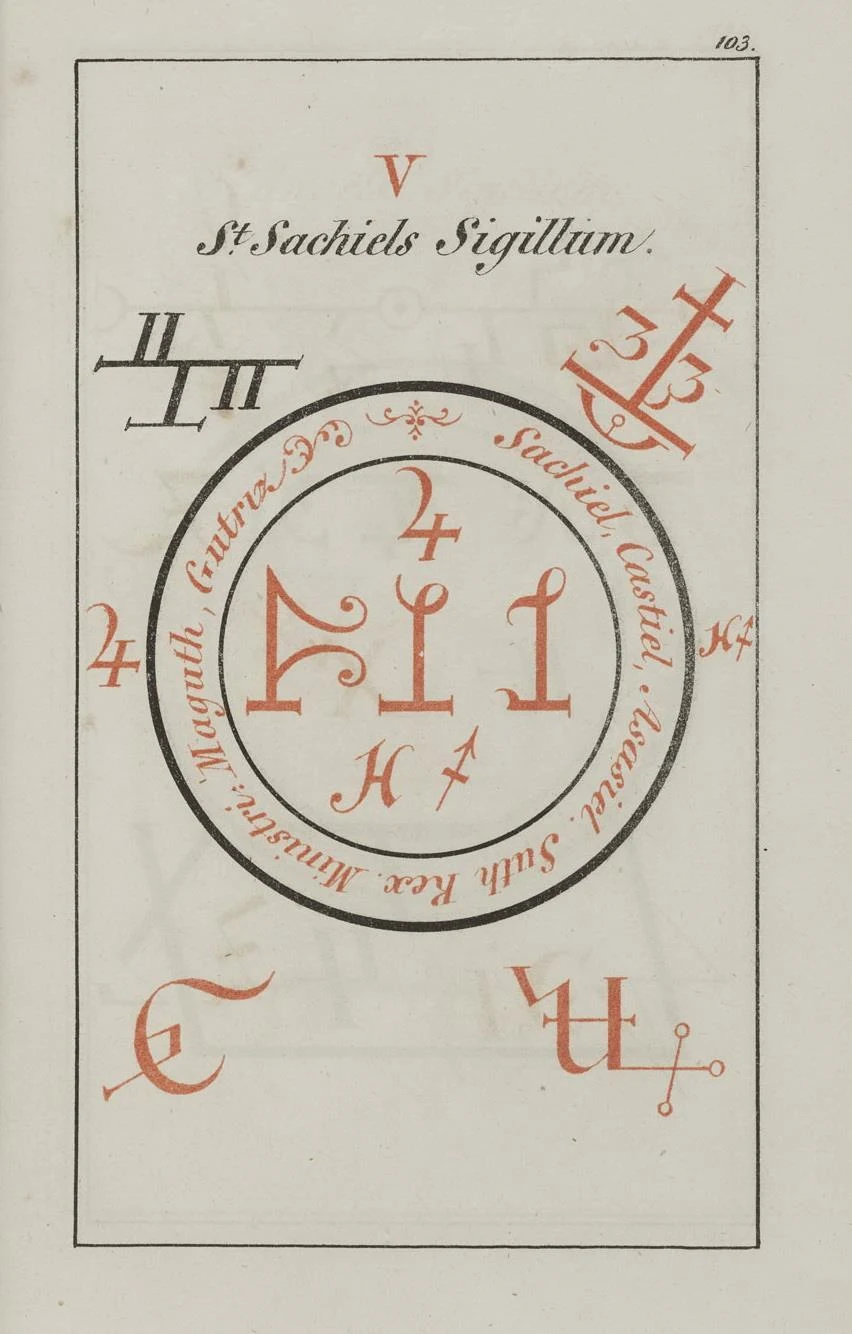 103.
V
St. Sachiels Sigillum.
Sachiel, Castiel, Asasiel. Suth Rex. Ministri: Maguth, Gutriz
♃
♃
♓ ♐
♓ ♐